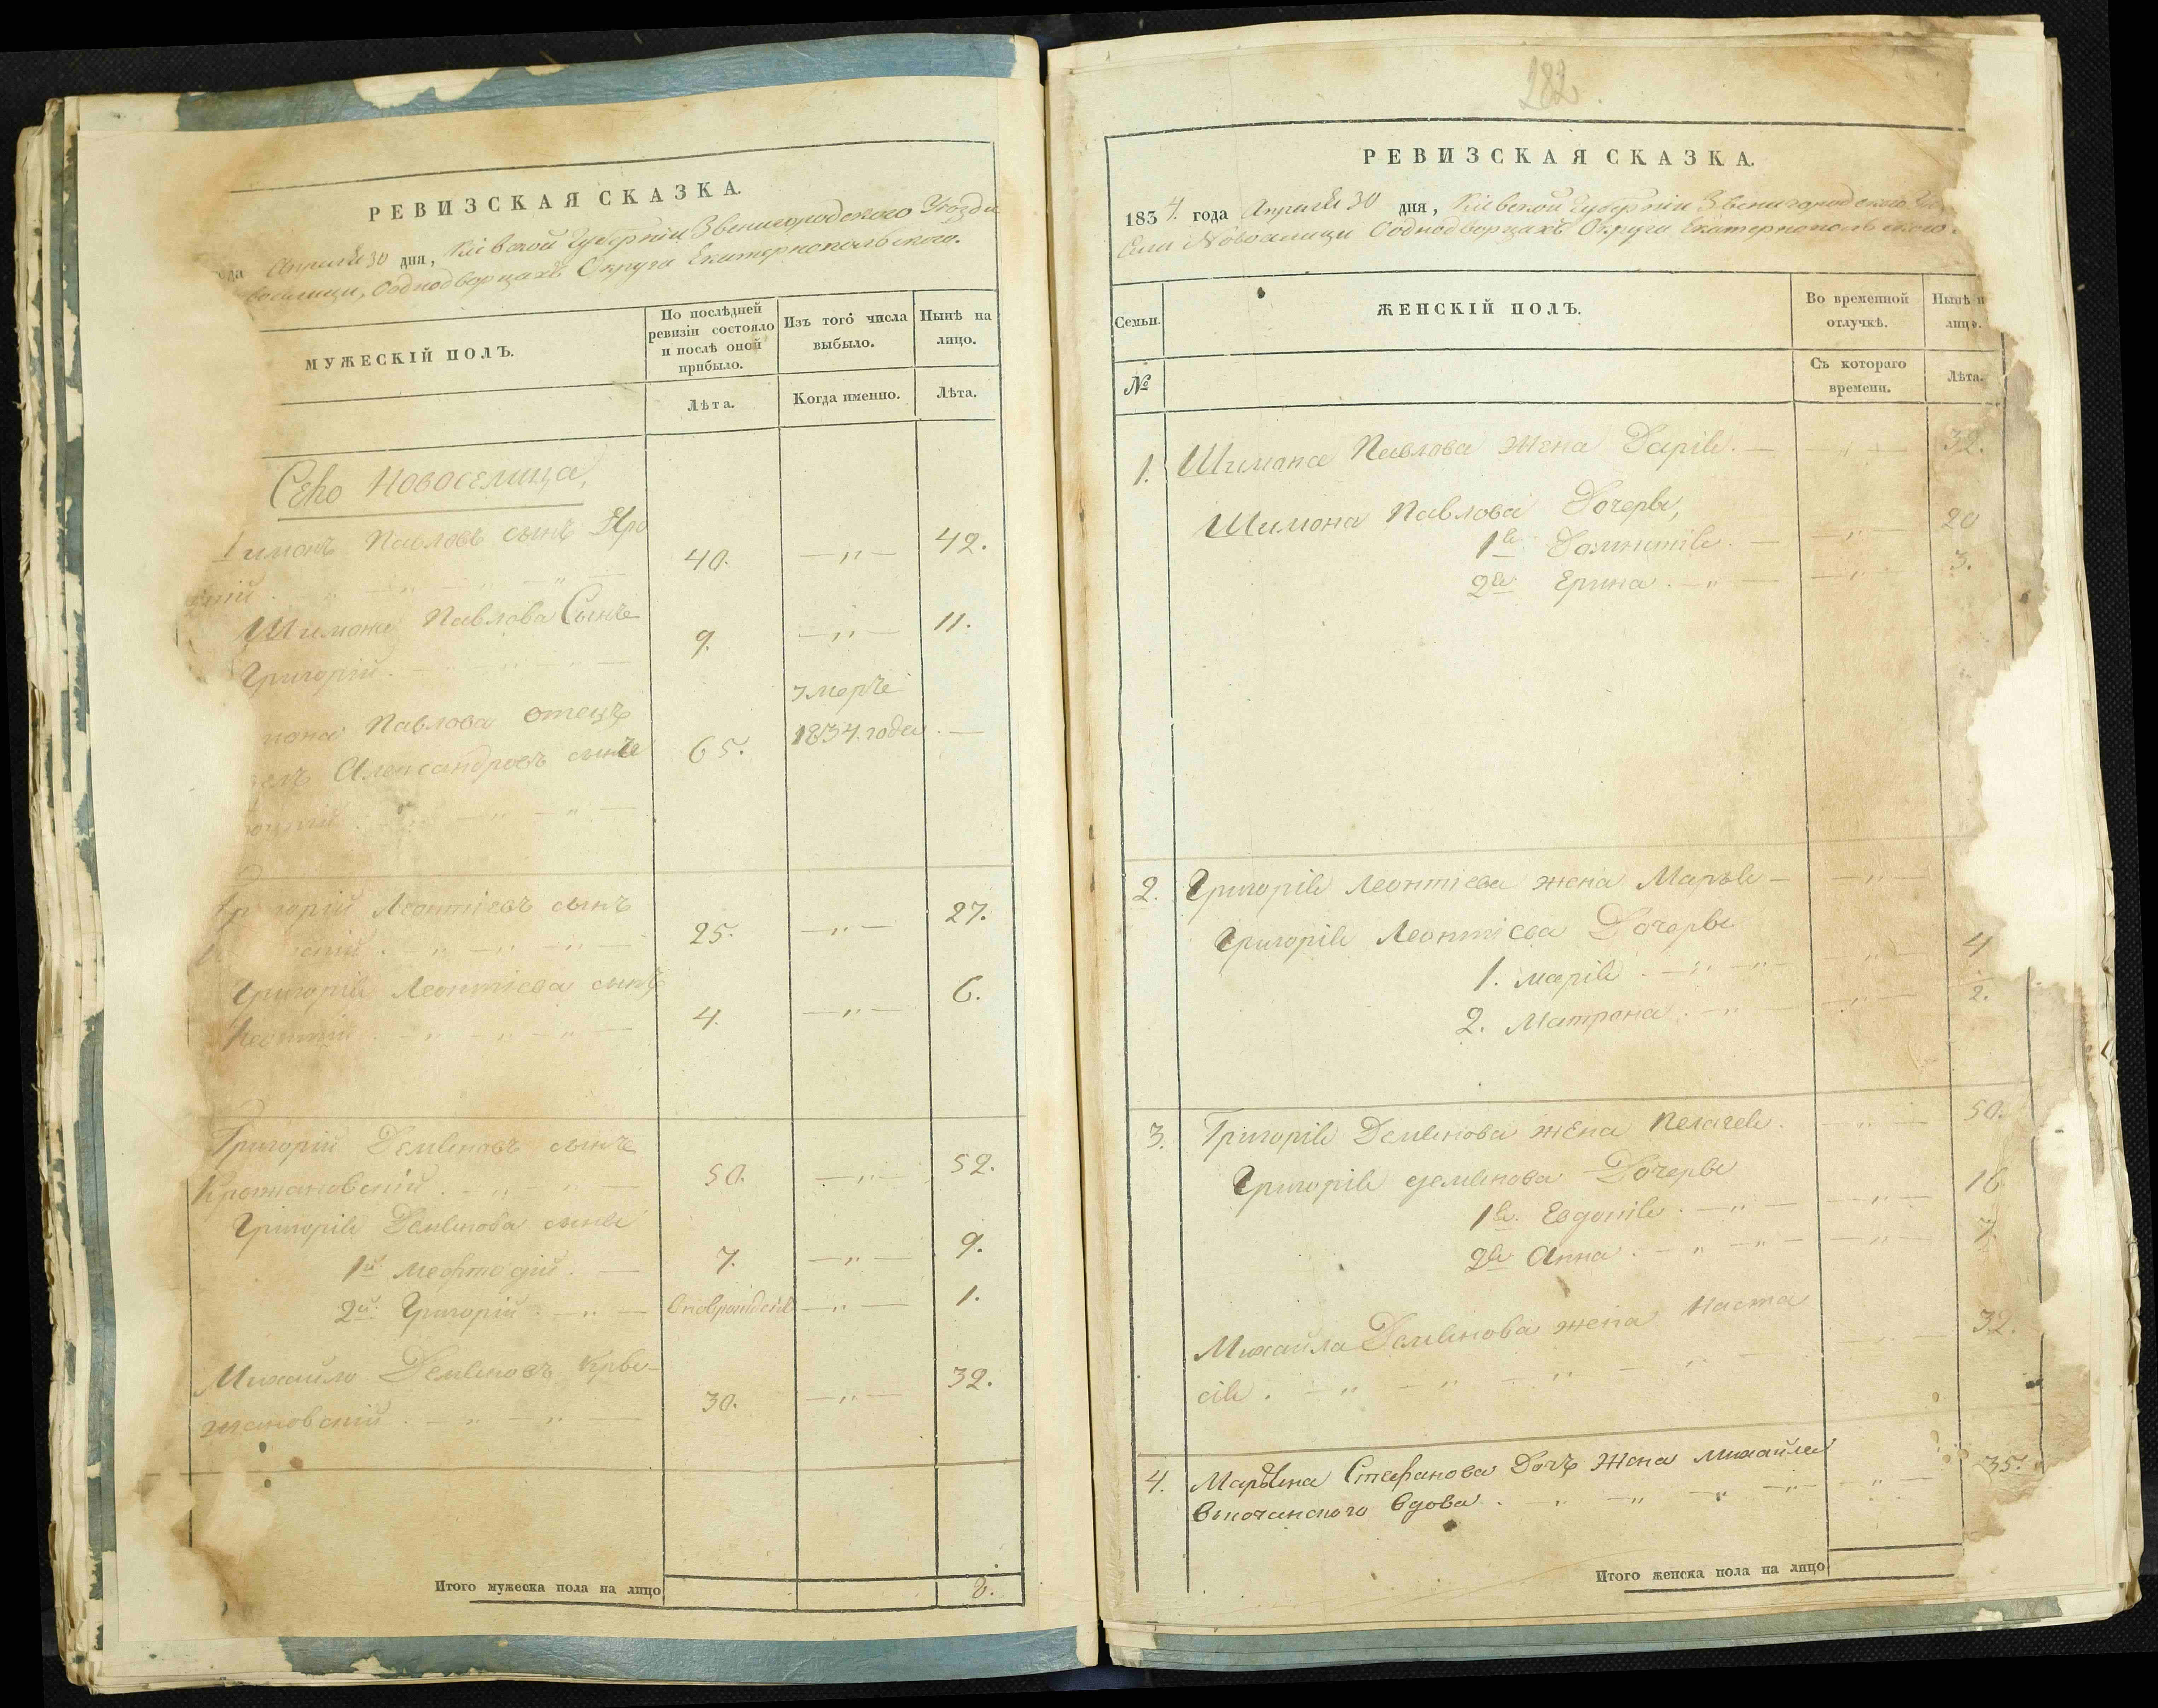 РЕВИЗСКАЯ СКАЗКА.
Апреля 30 дня, Кіевской Губерніи Звенигородского Уѣзда
Однодворцахъ Округа Екатеринопольского.
МУЖЕСКІЙ ПОЛЪ.
По послѣдней ревизіи состояло и послѣ оной прибыло.
Изъ того числа выбыло.
Нынѣ на лицо.
Лѣта.
Когда именно.
Лѣта.
Село Новоселица,
Павловъ сынъ
40. 42.
Шимона Павлова Сынъ
Григорій. 9. 11.
Павлова отецъ
умеръ
Александровъ сынъ 65. 1834. года.
Леонтіевъ сынъ
25. 27.
Григорія Леонтіева сынъ
Леонтій 4. 6.
Григорій Демяновъ сынъ
50. 52.
Григорія Демянова сыны
1й 7. 9.
2й Григорій. 1.
Михайло Демяновъ
30. 32.
Итого мужеска пола на лицо 8.
282
РЕВИЗСКАЯ СКАЗКА.
1834. года Апреля 30 дня, Кіевской Губерніи Звенигородского
Села Новоселици Однодворцахъ Округа Екатеринопольского.
Семьи.
ЖЕНСКІЙ ПОЛЪ.
Во временной отлучкѣ.
Нынѣ
лицо.
№
Съ котораго времени.
Лѣта.
1. Шимона Павлова жена Дарія. 32.
Шимона Павлова Дочеря,
1я 20
2я Ерина. 3.
2. Григорія Леонтіева жена Марья
Григорія Леонтіева Дочеря
1. Марія. 4
2. Матрона. 2.
3. Григорія Демянова жена Пелагея. 50.
Григорія Демянова Дочеря
1я. Евдокія. 16
2я Анна. 7.
Михайла Демянова жена Наста
сія. 32.
4. Марьяна Стефанова Дочъ Жена Михайла
вдова. 35.
Итого женска пола на лицо